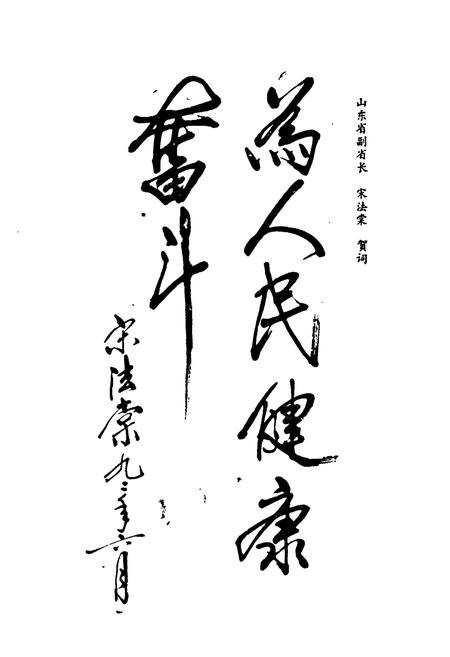 山东省副省长 宋法棠 贺词
为人民健康
奋斗
宋法棠九二年六月